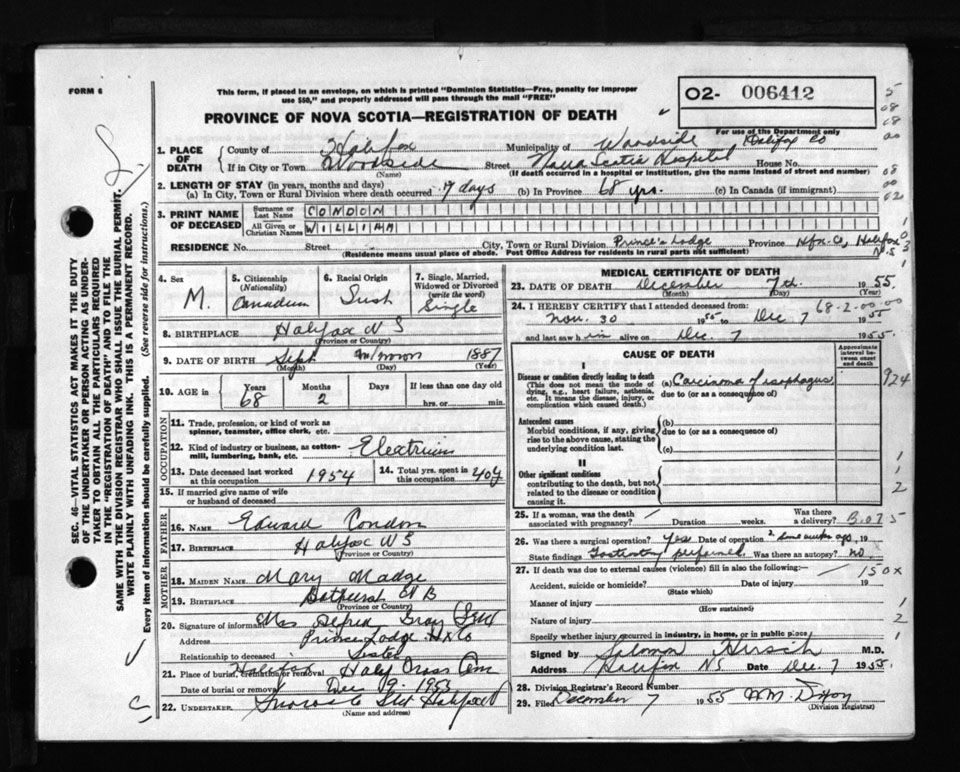 FORM 6
This form, if placed in an envelope, on which is printed "Dominion Statistics—Free, penalty for improper
use $50," and properly addressed will pass through the mail "FREE"
PROVINCE OF NOVA SCOTIA—REGISTRATION OF DEATH
O2- 006412
For use of the Department only
1. PLACE OF DEATH
County of Halifax Municipality of Woodside Halifax Co
If in City or Town Woodside Street Nova Scotia Hospital House No.
(Name) (If death occurred in a hospital or institution, give the name instead of street and number)
2. LENGTH OF STAY (in years, months and days)
(a) In City, Town or Rural Division where death occurred 7 days (b) In Province 68 yrs. (c) In Canada (if immigrant)
3. PRINT NAME OF DECEASED
Surname or Last Name CONDON
All Given or Christian Names WILLIAM
RESIDENCE No. Street City, Town or Rural Division Prince's Lodge Province Hfx. Co, Halifax N.S
(Residence means usual place of abode. Post Office Address for residents in rural parts not sufficient)
4. Sex M.
5. Citizenship (Nationality) Canadian
6. Racial Origin Irish
7. Single, Married, Widowed or Divorced (write the word) Single
8. BIRTHPLACE Halifax N S
(Province or Country)
9. DATE OF BIRTH Sept 1887
(Month) (Day) (Year)
10. AGE in Years 68 Months 2 Days If less than one day old hrs. or min.
OCCUPATION
11. Trade, profession, or kind of work as spinner, teamster, office clerk, etc.
12. Kind of industry or business, as cotton-mill, lumbering, bank, etc. Electrician
13. Date deceased last worked at this occupation 1954
14. Total yrs. spent in this occupation 40y
15. If married give name of wife or husband of deceased
FATHER
16. NAME Edward Condon
17. BIRTHPLACE Halifax N S
(Province or Country)
MOTHER
18. MAIDEN NAME Mary Madge
19. BIRTHPLACE Bathurst N B
(Province or Country)
20. Signature of informant Mrs Alfred Gray
Address Prince Lodge Hx Co
Relationship to deceased Sister
21. Place of burial, cremation or removal Halifax, Holy Cross Cem
Date of burial or removal Dec 9 1955
22. UNDERTAKER Halifax
(Name and address)
MEDICAL CERTIFICATE OF DEATH
23. DATE OF DEATH December 7th. 1955.
(Month) (Day) (Year)
24. I HEREBY CERTIFY that I attended deceased from: 68-2-00-00
Nov. 30 1955 to Dec 7 1955
and last saw him alive on Dec. 7 1955.
CAUSE OF DEATH
Approximate interval between onset and death
I
Disease or condition directly leading to death
(This does not mean the mode of dying, e.g., heart failure, asthenia, etc. It means the disease, injury, or complication which caused death.)
(a) Carcinoma of esophagus 924
due to (or as a consequence of)
Antecedent causes
Morbid conditions, if any, giving rise to the above cause, stating the underlying condition last.
(b)
due to (or as a consequence of)
(c)
II
Other significant conditions
contributing to the death, but not related to the disease or condition causing it.
25. If a woman, was the death associated with pregnancy? Duration weeks. Was there a delivery?
26. Was there a surgical operation? Yes Date of operation 2 some weeks ago, 19
State findings performed. Was there an autopsy? no.
27. If death was due to external causes (violence) fill in also the following:— 150X
Accident, suicide or homicide? Date of injury 19
(State which)
Manner of injury
(How sustained)
Nature of injury
Specify whether injury occurred in industry, in home, or in public place
Signed by Solomon Hirsch M.D.
Address Halifax NS Date Dec. 7 1955.
28. Division Registrar's Record Number
29. Filed December 7 1955
(Division Registrar)
SEC. 46—VITAL STATISTICS ACT MAKES IT THE DUTY
OF THE UNDERTAKER OR PERSON ACTING AS UNDER-
TAKER TO OBTAIN ALL THE PARTICULARS REQUIRED
IN THE "REGISTRATION OF DEATH" AND TO FILE THE
SAME WITH THE DIVISION REGISTRAR WHO SHALL ISSUE THE BURIAL PERMIT.
WRITE PLAINLY WITH UNFADING INK. THIS IS A PERMANENT RECORD.
Every item of information should be carefully supplied. (See reverse side for instructions.)